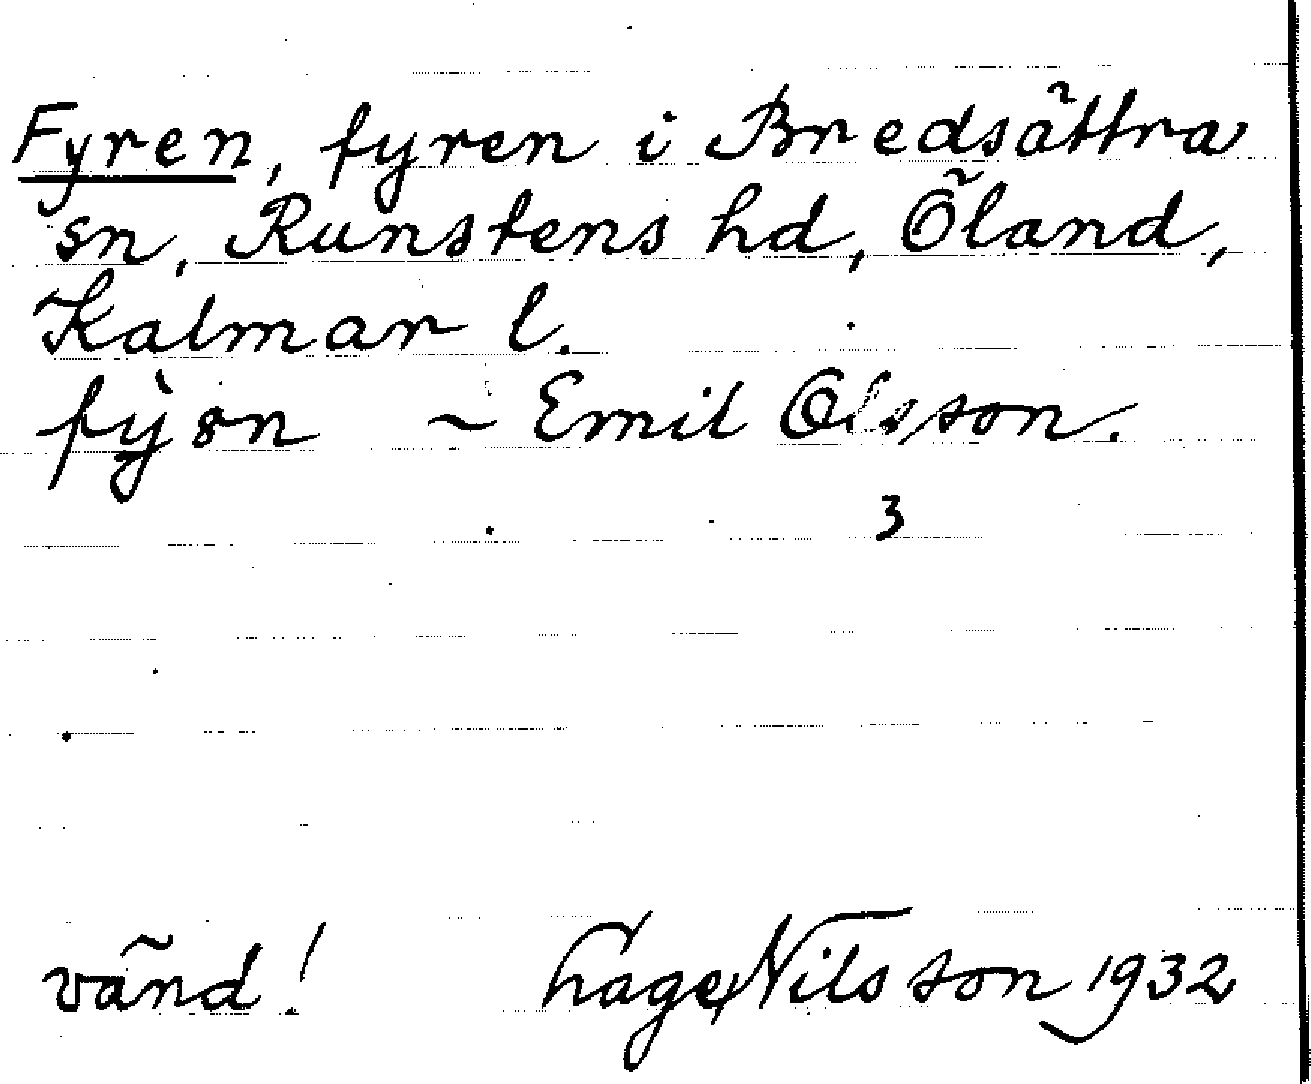 Fyren, fyren i Bredsättra
sn, Runstens hd, Öland,
Kalmar l.
fỳsn ~ Emil Olsson.
3
vänd! Hage Nilsson 1932